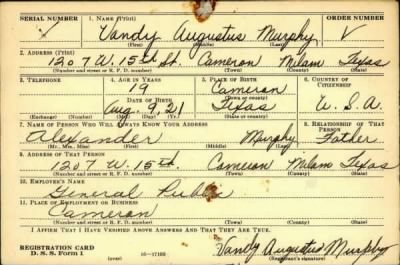 SERIAL NUMBER 1. NAME (Print) ORDER NUMBER
Vandy Augustus Murphy V
(First) (Middle) (Last)
2. ADDRESS (Print)
1207 W. 15th St. Cameron Milam Texas
(Number and street or R. F. D. number) (Town) (County) (State)
3. TELEPHONE 4. AGE IN YEARS 5. PLACE OF BIRTH 6. COUNTRY OF CITIZENSHIP
19 Cameron
DATE OF BIRTH (Town or county)
Aug. 9, 21 Texas U. S. A.
(Exchange) (Number) (Mo.) (Day) (Yr.) (State or country)
7. NAME OF PERSON WHO WILL ALWAYS KNOW YOUR ADDRESS 8. RELATIONSHIP OF THAT PERSON
Alexander Murphy Father
(Mr., Mrs., Miss) (First) (Middle) (Last)
9. ADDRESS OF THAT PERSON
1207 W. 15th. Cameron Milam Texas
(Number and street or R. F. D. number) (Town) (County) (State)
10. EMPLOYER'S NAME
General
11. PLACE OF EMPLOYMENT OR BUSINESS
Cameron
(Number and street or R. F. D. number) (Town) (County) (State)
I AFFIRM THAT I HAVE VERIFIED ABOVE ANSWERS AND THAT THEY ARE TRUE.
REGISTRATION CARD
D. S. S. Form 1 (over) 16—17105 Vandy Augustus Murphy
(Registrant's signature)